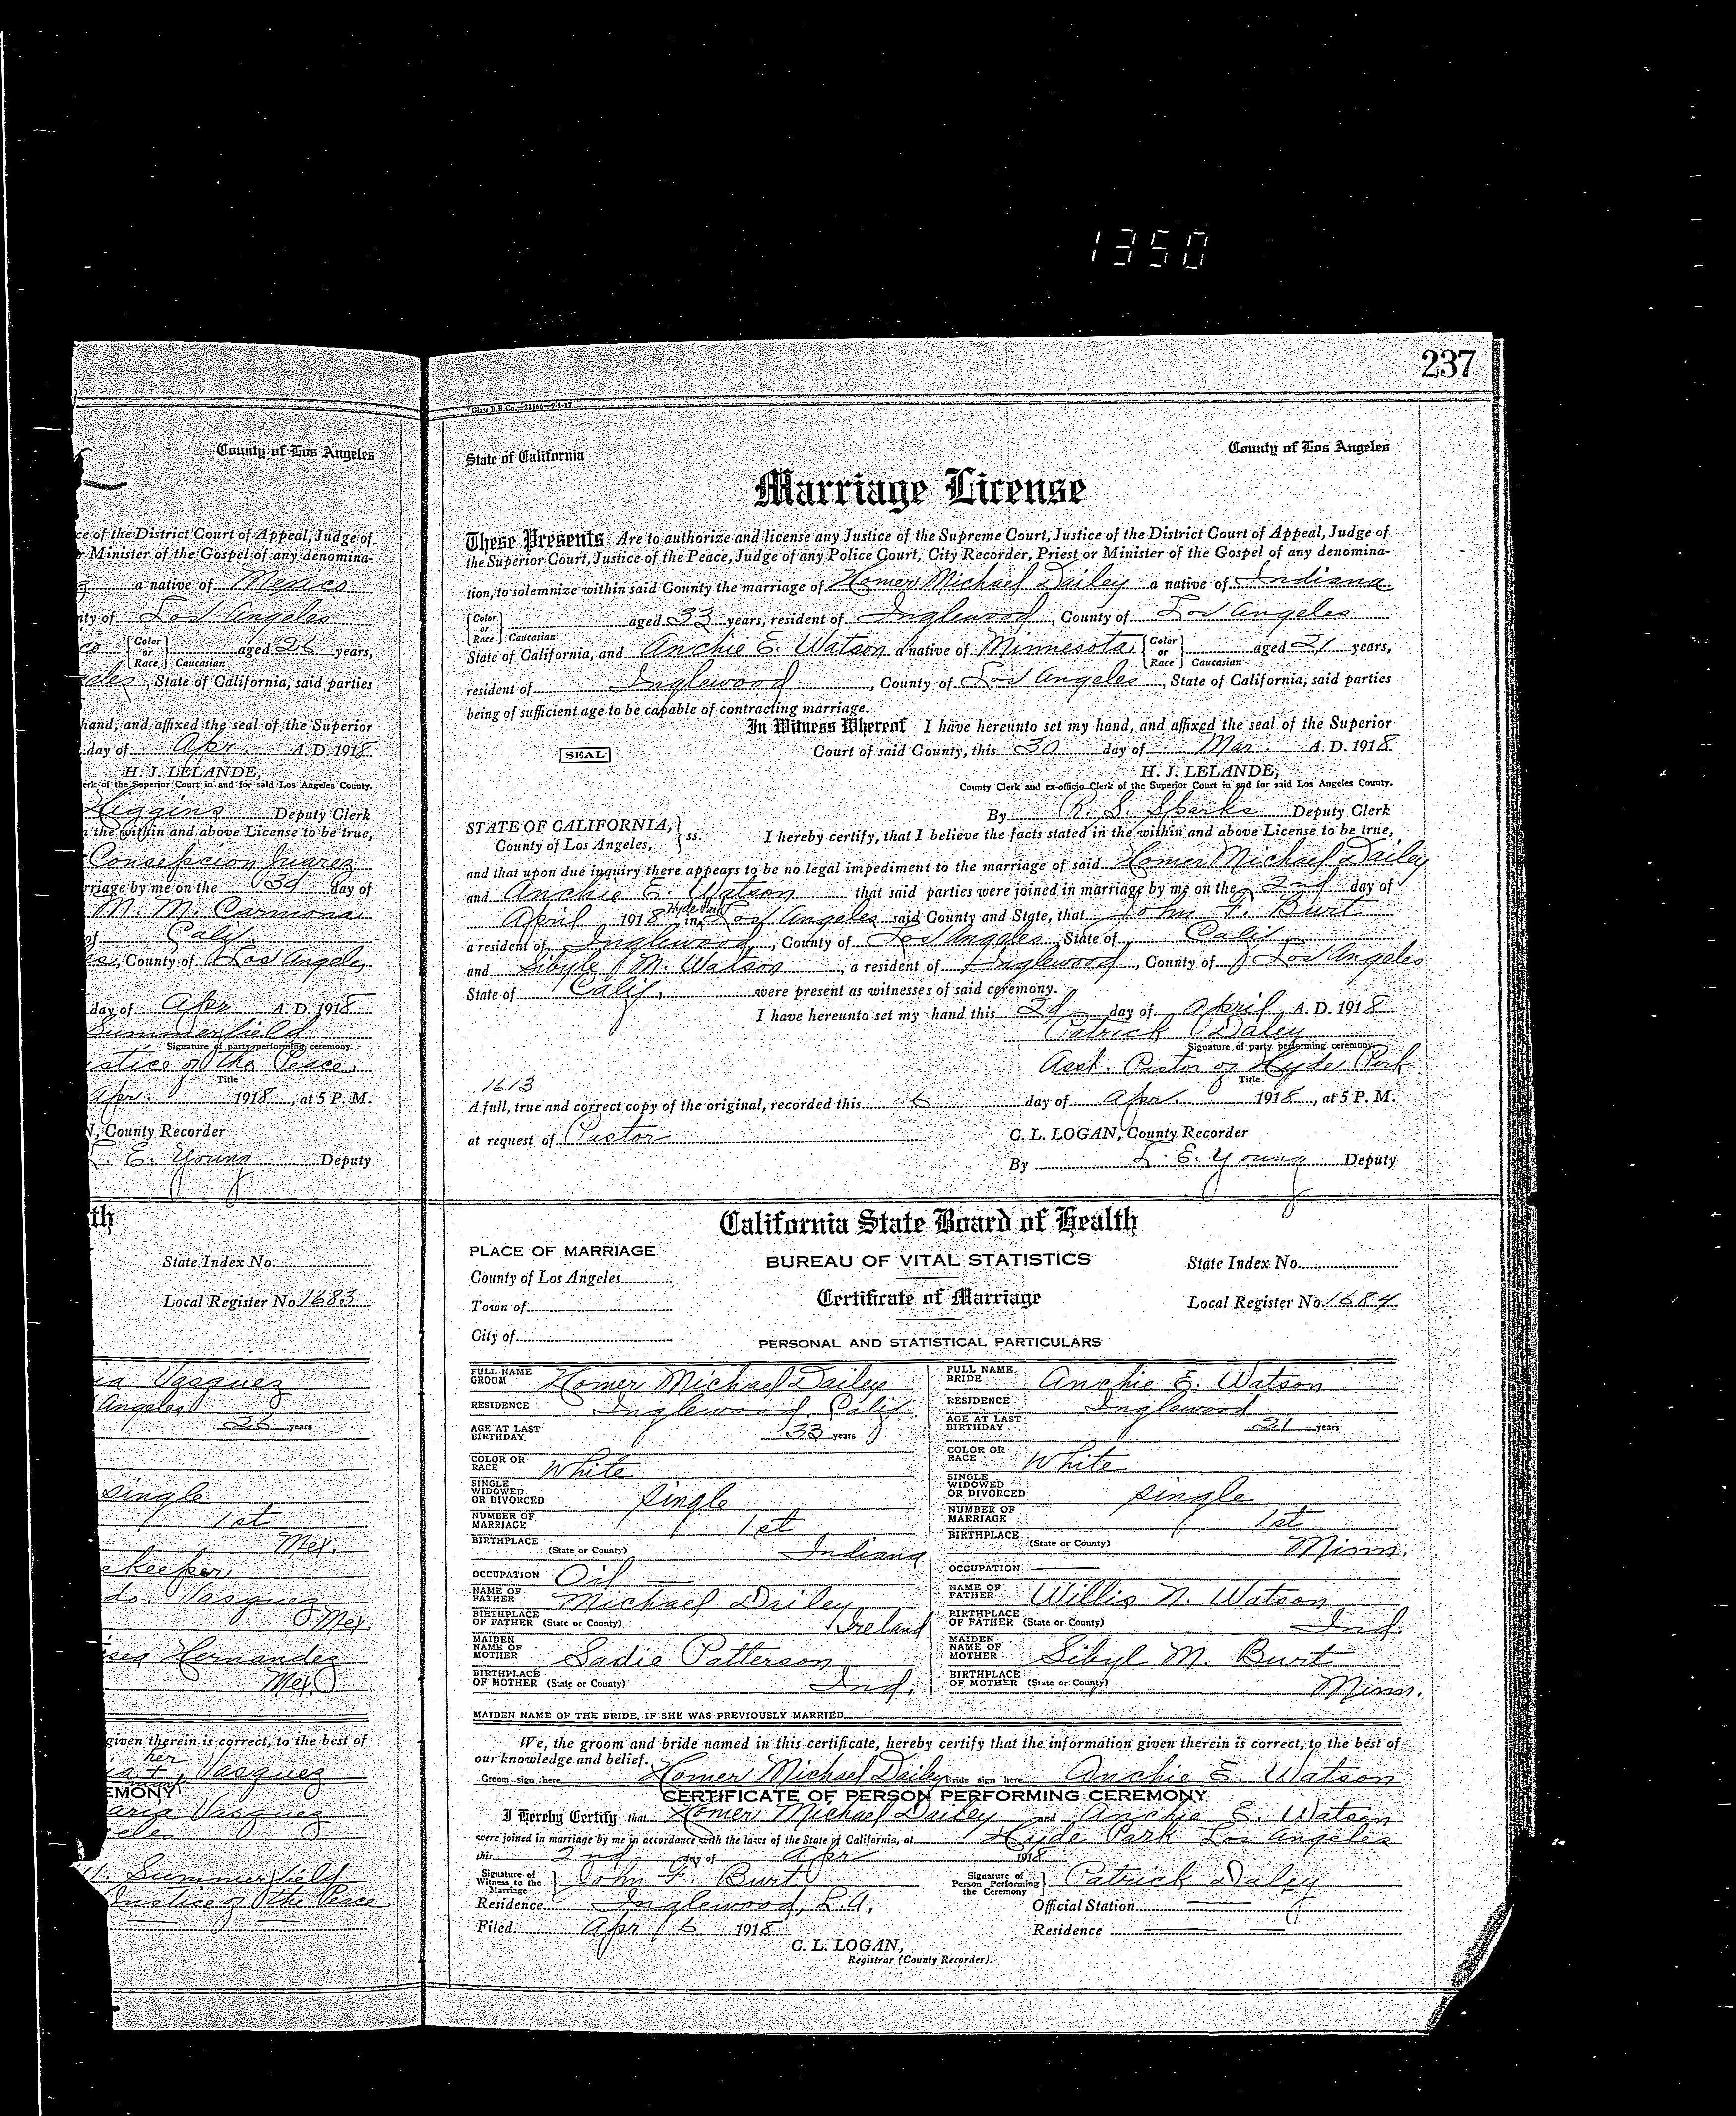 1350
237
County of Los Angeles
ce of the District Court of Appeal, Judge of
r Minister of the Gospel of any denomina-
a native of Mexico
nty of Los Angeles
Color or Race Caucasian aged 26 years,
eles, State of California, said parties
hand, and affixed the seal of the Superior
day of Apr. A. D. 1918
H. J. LELANDE,
erk of the Superior Court in and for said Los Angeles County.
Higgins Deputy Clerk
n the within and above License to be true,
Consepcion Juarez
rriage by me on the 3d day of
M. M. Carmona
of Calif.
es, County of Los Angeles
day of Apr A. D. 1918
Summerfield
Signature of party performing ceremony.
ustice of the Peace
Title
Apr. 1918, at 5 P. M.
N, County Recorder
L. E. Young Deputy
th
State Index No.
Local Register No. 1683
ia Vasquez
Angeles
26 years
single
1st
Mex.
ekeeper
do Vasquez
Mex.
Hernandez
Mex
given therein is correct, to the best of
her
ia + Vasquez
EMONY
aria Vasquez
eles
Summerfield
Justice of the Peace
Glass B. B. Co.—22166—9-1-17
State of California County of Los Angeles
Marriage License
These Presents Are to authorize and license any Justice of the Supreme Court, Justice of the District Court of Appeal, Judge of
the Superior Court, Justice of the Peace, Judge of any Police Court, City Recorder, Priest or Minister of the Gospel of any denomina-
tion, to solemnize within said County the marriage of Homer Michael Dailey a native of Indiana
Color or Race Caucasian aged 33 years, resident of Inglewood, County of Los Angeles
State of California, and Anchie E. Watson a native of Minnesota, Color or Race Caucasian aged 21 years,
resident of Inglewood, County of Los Angeles, State of California, said parties
being of sufficient age to be capable of contracting marriage.
In Witness Whereof I have hereunto set my hand, and affixed the seal of the Superior
SEAL Court of said County, this 30 day of Mar. A. D. 1918
H. J. LELANDE,
County Clerk and ex-officio Clerk of the Superior Court in and for said Los Angeles County.
By R. S. Sparks Deputy Clerk
STATE OF CALIFORNIA, County of Los Angeles, ss. I hereby certify, that I believe the facts stated in the within and above License to be true,
and that upon due inquiry there appears to be no legal impediment to the marriage of said Homer Michael Dailey
and Anchie E. Watson that said parties were joined in marriage by me on the 2nd day of
April 1918 in Hyde Park Los Angeles said County and State, that John F. Burt
a resident of Inglewood, County of Los Angeles State of Calif
and Sibyle M. Watson, a resident of Inglewood, County of Los Angeles
State of Calif, were present as witnesses of said ceremony.
I have hereunto set my hand this 2d day of April A. D. 1918
Patrick Daley
Signature of party performing ceremony.
Asst. Pastor of Hyde Park
Title
1613
A full, true and correct copy of the original, recorded this 6 day of Apr 1918, at 5 P. M.
at request of Pastor C. L. LOGAN, County Recorder
By L. E. Young Deputy
California State Board of Health
PLACE OF MARRIAGE
BUREAU OF VITAL STATISTICS
State Index No.
County of Los Angeles
Certificate of Marriage
Local Register No. 1684
Town of
City of
PERSONAL AND STATISTICAL PARTICULARS
FULL NAME GROOM Homer Michael Dailey
RESIDENCE Inglewood Calif.
AGE AT LAST BIRTHDAY 33 years
COLOR OR RACE White
SINGLE WIDOWED OR DIVORCED single
NUMBER OF MARRIAGE 1st
BIRTHPLACE (State or County) Indiana
OCCUPATION Oil —
NAME OF FATHER Michael Dailey
BIRTHPLACE OF FATHER (State or County) Ireland
MAIDEN NAME OF MOTHER Sadie Patterson
BIRTHPLACE OF MOTHER (State or County) Ind.
FULL NAME BRIDE Anchie E. Watson
RESIDENCE Inglewood
AGE AT LAST BIRTHDAY 21 years
COLOR OR RACE White
SINGLE WIDOWED OR DIVORCED single
NUMBER OF MARRIAGE 1st
BIRTHPLACE (State or County) Minn.
OCCUPATION —
NAME OF FATHER Willis N. Watson
BIRTHPLACE OF FATHER (State or County) Ind.
MAIDEN NAME OF MOTHER Sibyl M. Burt
BIRTHPLACE OF MOTHER (State or County) Minn.
MAIDEN NAME OF THE BRIDE, IF SHE WAS PREVIOUSLY MARRIED
We, the groom and bride named in this certificate, hereby certify that the information given therein is correct, to the best of
our knowledge and belief.
Groom sign here Homer Michael Dailey Bride sign here Anchie E. Watson
CERTIFICATE OF PERSON PERFORMING CEREMONY
I Hereby Certify that Homer Michael Dailey and Anchie E. Watson
were joined in marriage by me in accordance with the laws of the State of California, at Hyde Park Los Angeles
this 2nd day of Apr 1918
Signature of Witness to the Marriage John F. Burt Signature of Person Performing the Ceremony Patrick Daley
Residence Inglewood, L.A. Official Station
Filed Apr 6 1918 Residence
C. L. LOGAN,
Registrar (County Recorder).